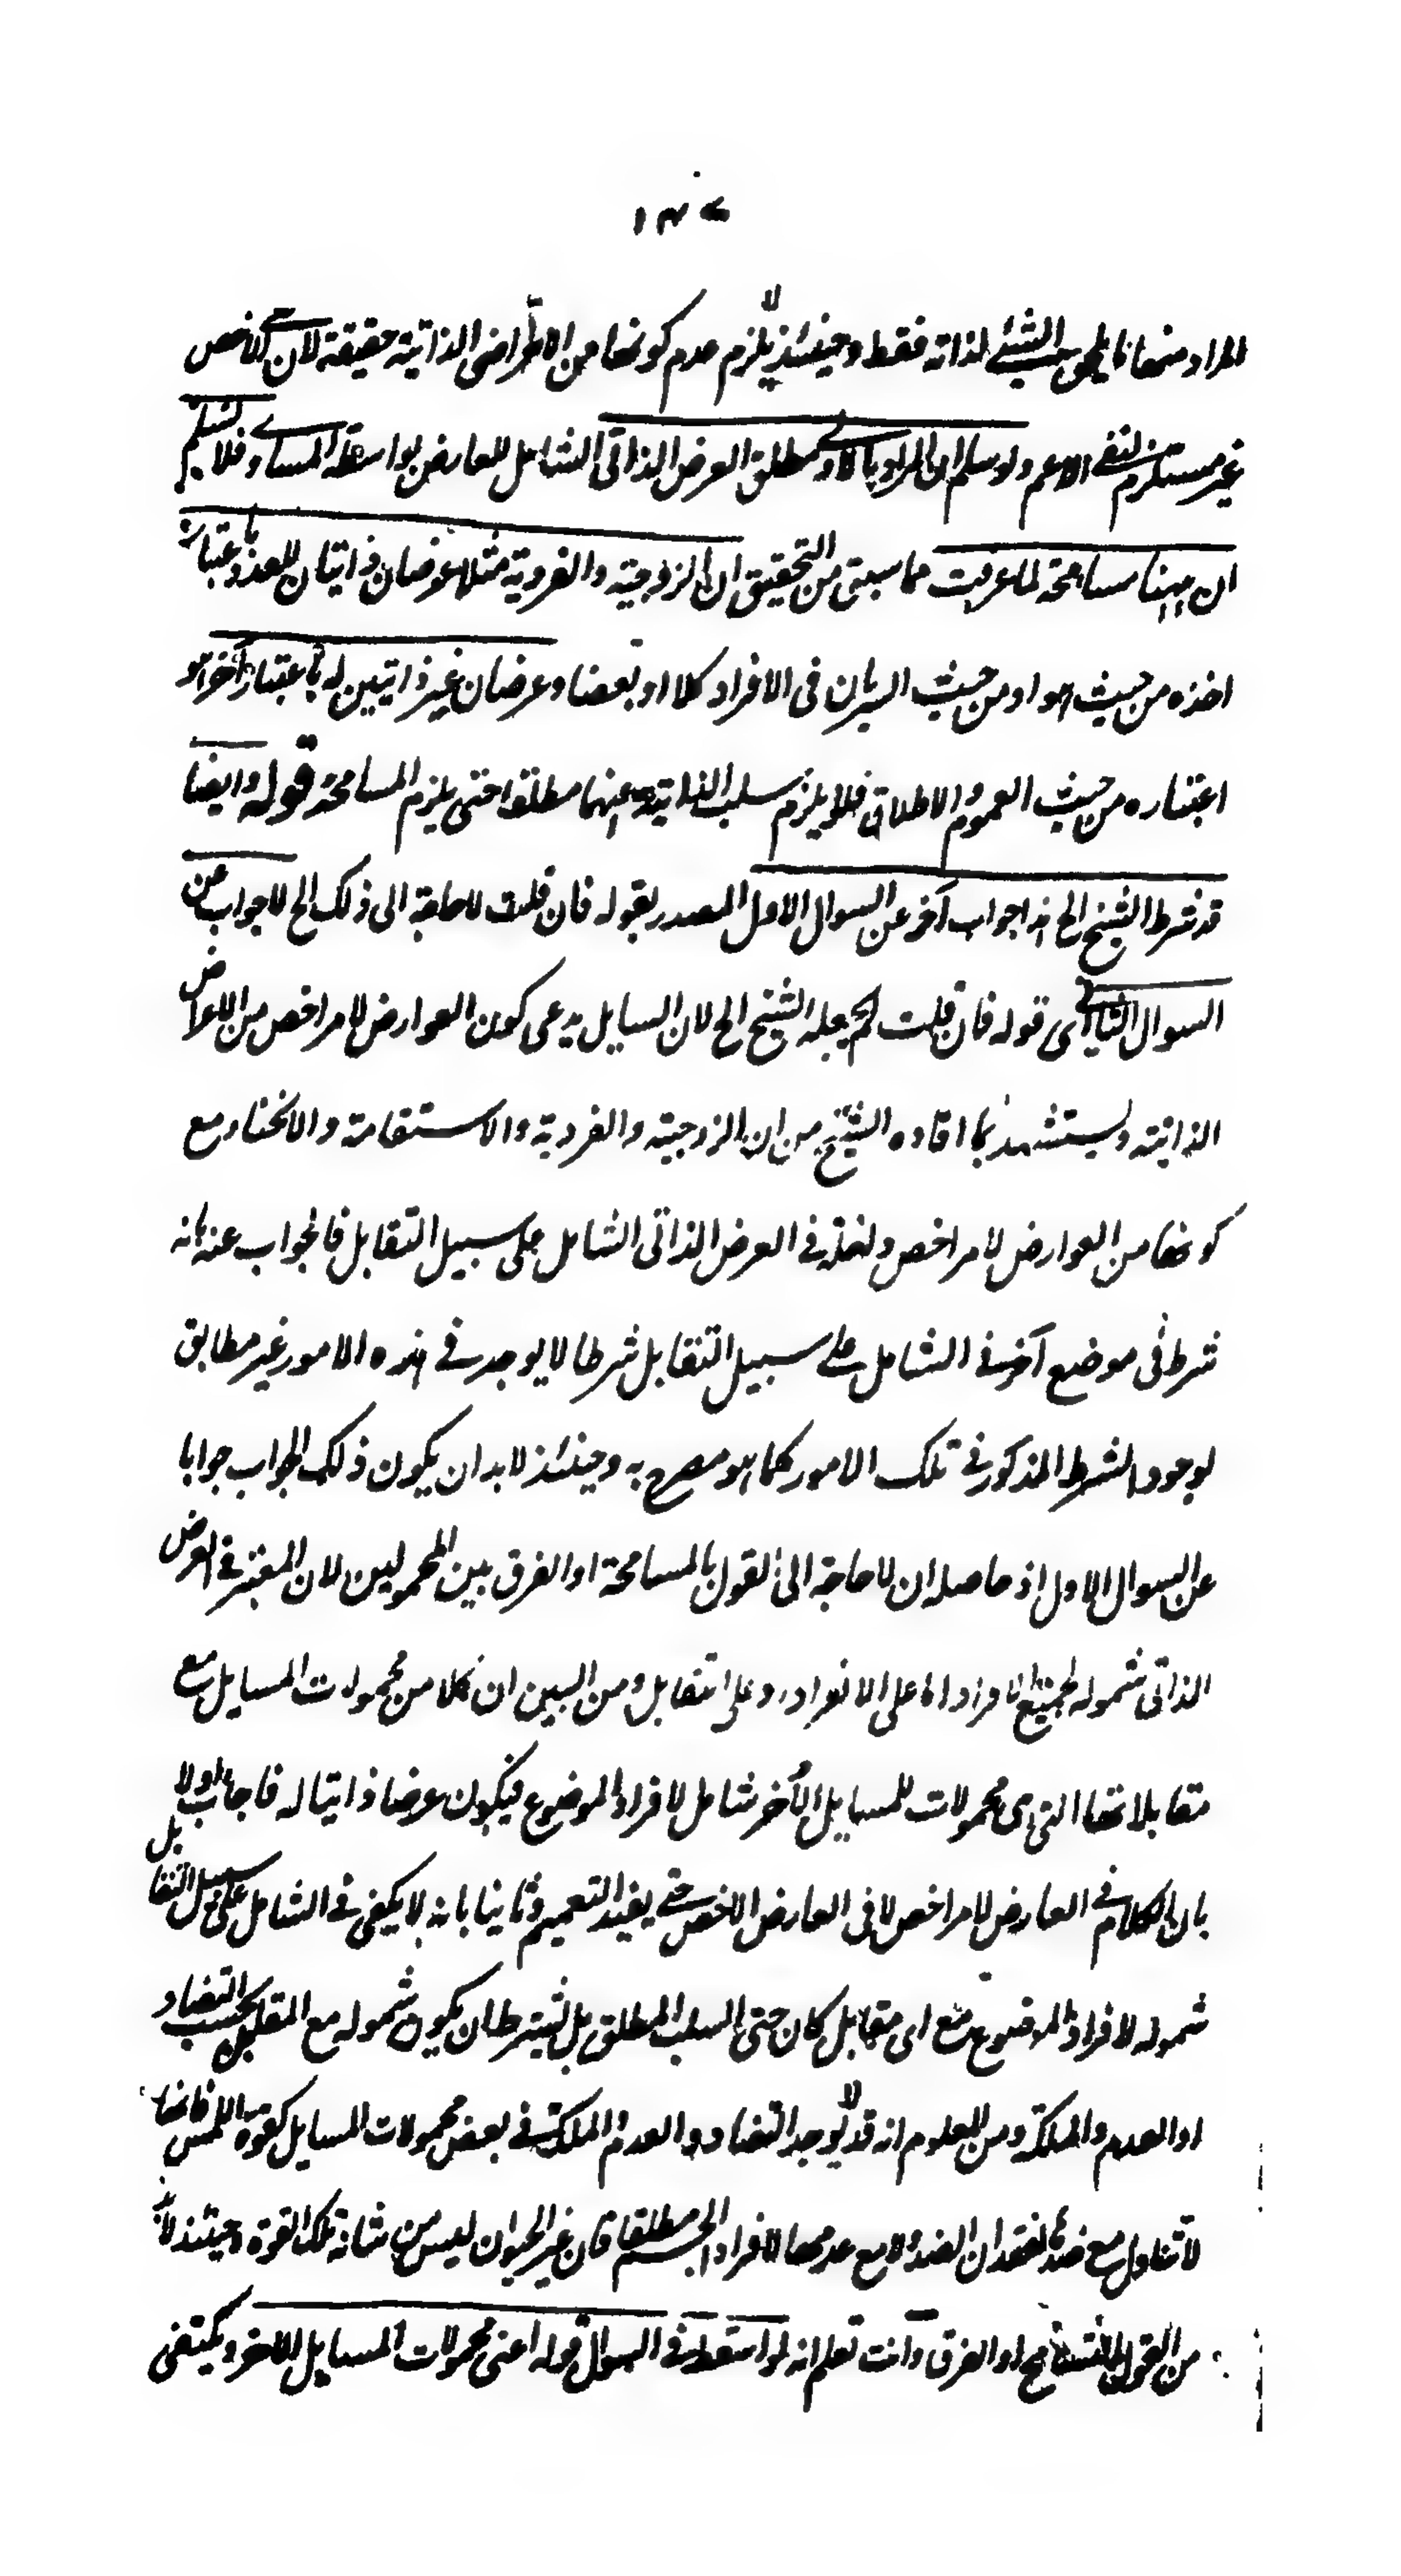 ١٣٧
المراد منها ما يلحق الشئ لذاته فقط وحينئذ لا يلزم عدم كونها من الاعراض الذاتية حقيقة لان نفى الاخص
غير مستلزم لنفى الاعم ولو سلم ان المراد بالاولى مطلق العرض الذاتى الشامل للعارض بواسطة المساوى فلا نسلم
ان ههنا مسامحة لما عرفت مما سبق من التحقيق ان الزوجية والفردية مثلا عرضان ذاتيان للعدد باعتبار
اخذه من حيث هو او من حيث السريان فى الافراد كلا او بعضا وعرضان غير ذاتيين له باعتبار آخر هو
اعتباره من حيث العموم والاطلاق فلا يلزم سلب الذاتية عنهما مطلقا حتى يلزم المسامحة قوله وايضا
قد شرط الشيخ الخ هذا جواب آخر عن السوال الاول المصدر بقوله فان قلت لا حاجة الى ذلك الخ لا جواب عن
السوال الثانى اى قوله فان قلت لم يجعله الشيخ الخ لان السايل يدعى كون العوارض لامر اخص من الاعراض
الذاتية ويستشهد بما افاده الشيخ من ان الزوجية والفردية والاستقامة والانحناء مع
كونها من العوارض لامر اخص داخلة فى العرض الذاتى الشامل على سبيل التقابل فالجواب عنه بانه
شرط فى موضع آخر فى الشامل على سبيل التقابل شرطا لا يوجد فى هذه الامور غير مطابق
لوجود الشرط المذكور فى تلك الامور كما هو مصرح به وحينئذ لا بد ان يكون ذلك الجواب جوابا
عن السوال الاول اذ حاصله ان لا حاجة الى القول بالمسامحة او الفرق بين المحمولين لان المعتبر فى العرض
الذاتى شموله لجميع الافراد اما على الانفراد او على التقابل ومن البين ان كلا من محمولات المسايل مع
مقابلاتها التى هى محمولات للمسايل الأخر شامل لافراد الموضوع فيكون عرضا ذاتيا له فاجاب اولا
بان الكلام فى العارض لامر اخص لا فى العارض الاخص حتى يفيد التعميم وثانيا بانه لا يكفى فى الشامل على سبيل التقابل
شموله لافراد الموضوع مع اى مقابل كان حتى السلب المطلق بل يشترط ان يكون شموله مع المقابل بحسب التضاد
او العدم والملكة ومن المعلوم انه قد لا يوجد التضاد والعدم والملكة فى بعض محمولات المسايل كقوة اللمس فانها
لا تتناول مع ضدها لفقدان الضد ولا مع عدمها لافراد الجسم مطلقا فان غير الحيوان ليس من شانه تلك القوة وحينئذ لا بد
من القول بالتسامح او الفرق وانت تعلم انه لو اسقط فى السوال قوله اعنى محمولات المسايل للاخر ويكتفى